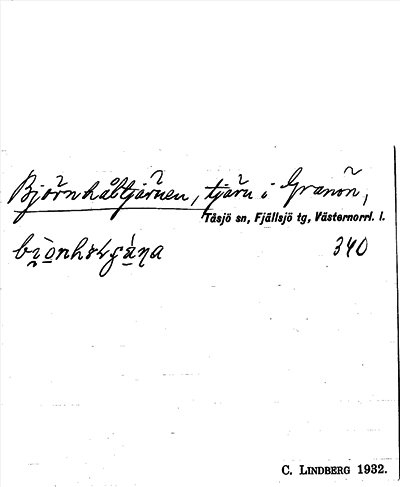 Björnhåltjärnen, tjärn i Granön,
Tåsjö sn, Fjällsjö tg, Västernorrl. l.
340
C. LINDBERG 1932.